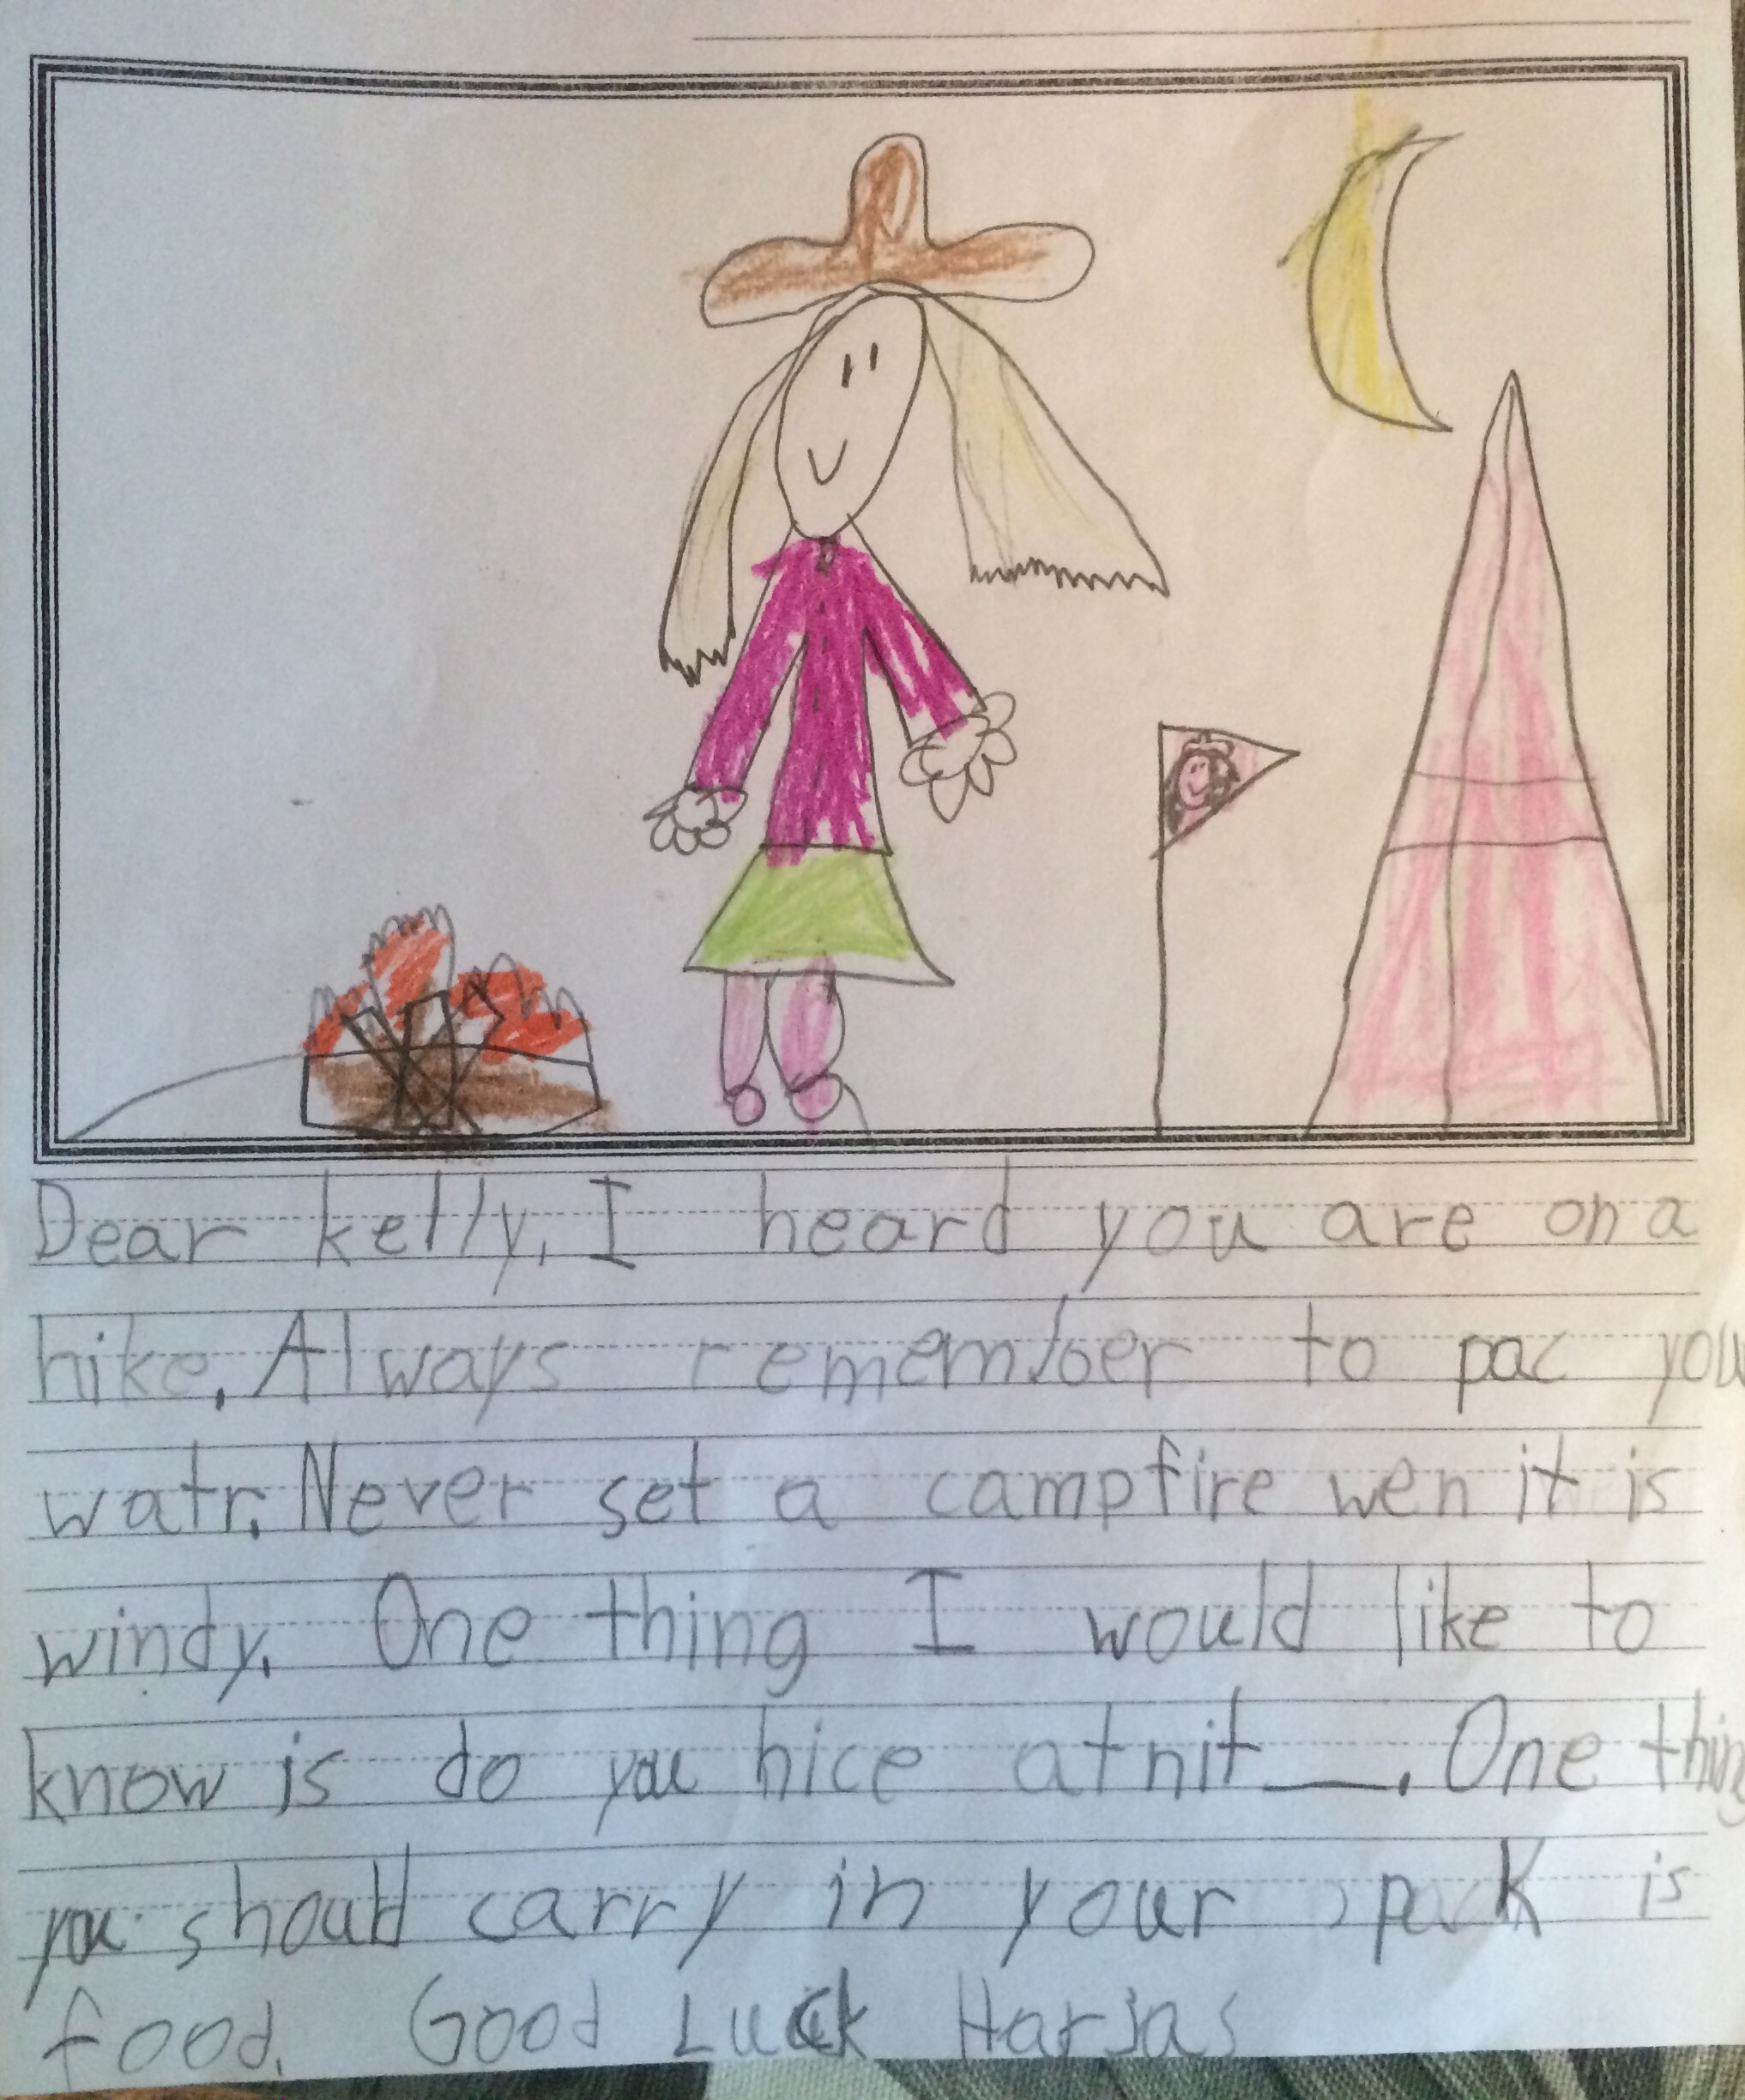 Dear kelly, I heard you are on a
hike. Always remember to pac you
watr. Never set a campfire wen it is
windy. One thing I would like to
know is do you hice at nit___. One thing
you should carry in your pack is
food. Good Luck Harjas